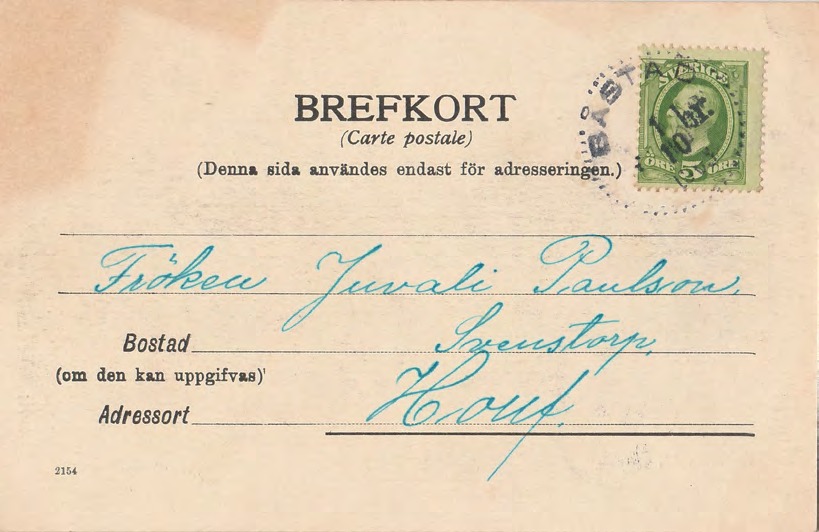 BREFKORT
(Carte postale)
(Denna sida användes endast för adresseringen.)
SVERIGE
ÖRE 5 ÖRE
BÅSTAD
10
Fröken Juvali Paulson.
Bostad Svenstorp.
(om den kan uppgifvas)
Adressort Houf.
2154